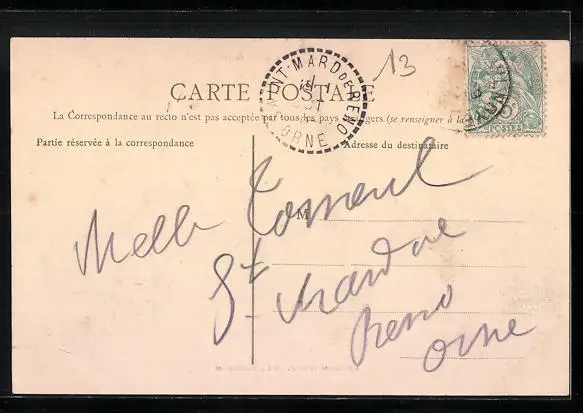 13
CARTE POSTALE
SAINT-MARD DE RENO
ORNE
5c
POSTES
La Correspondance au recto n'est pas acceptée par tous les pays étrangers (se renseigner à la
Partie réservée à la correspondance
Adresse du destinataire
M
Melle
St Mard de
Reno
Orne